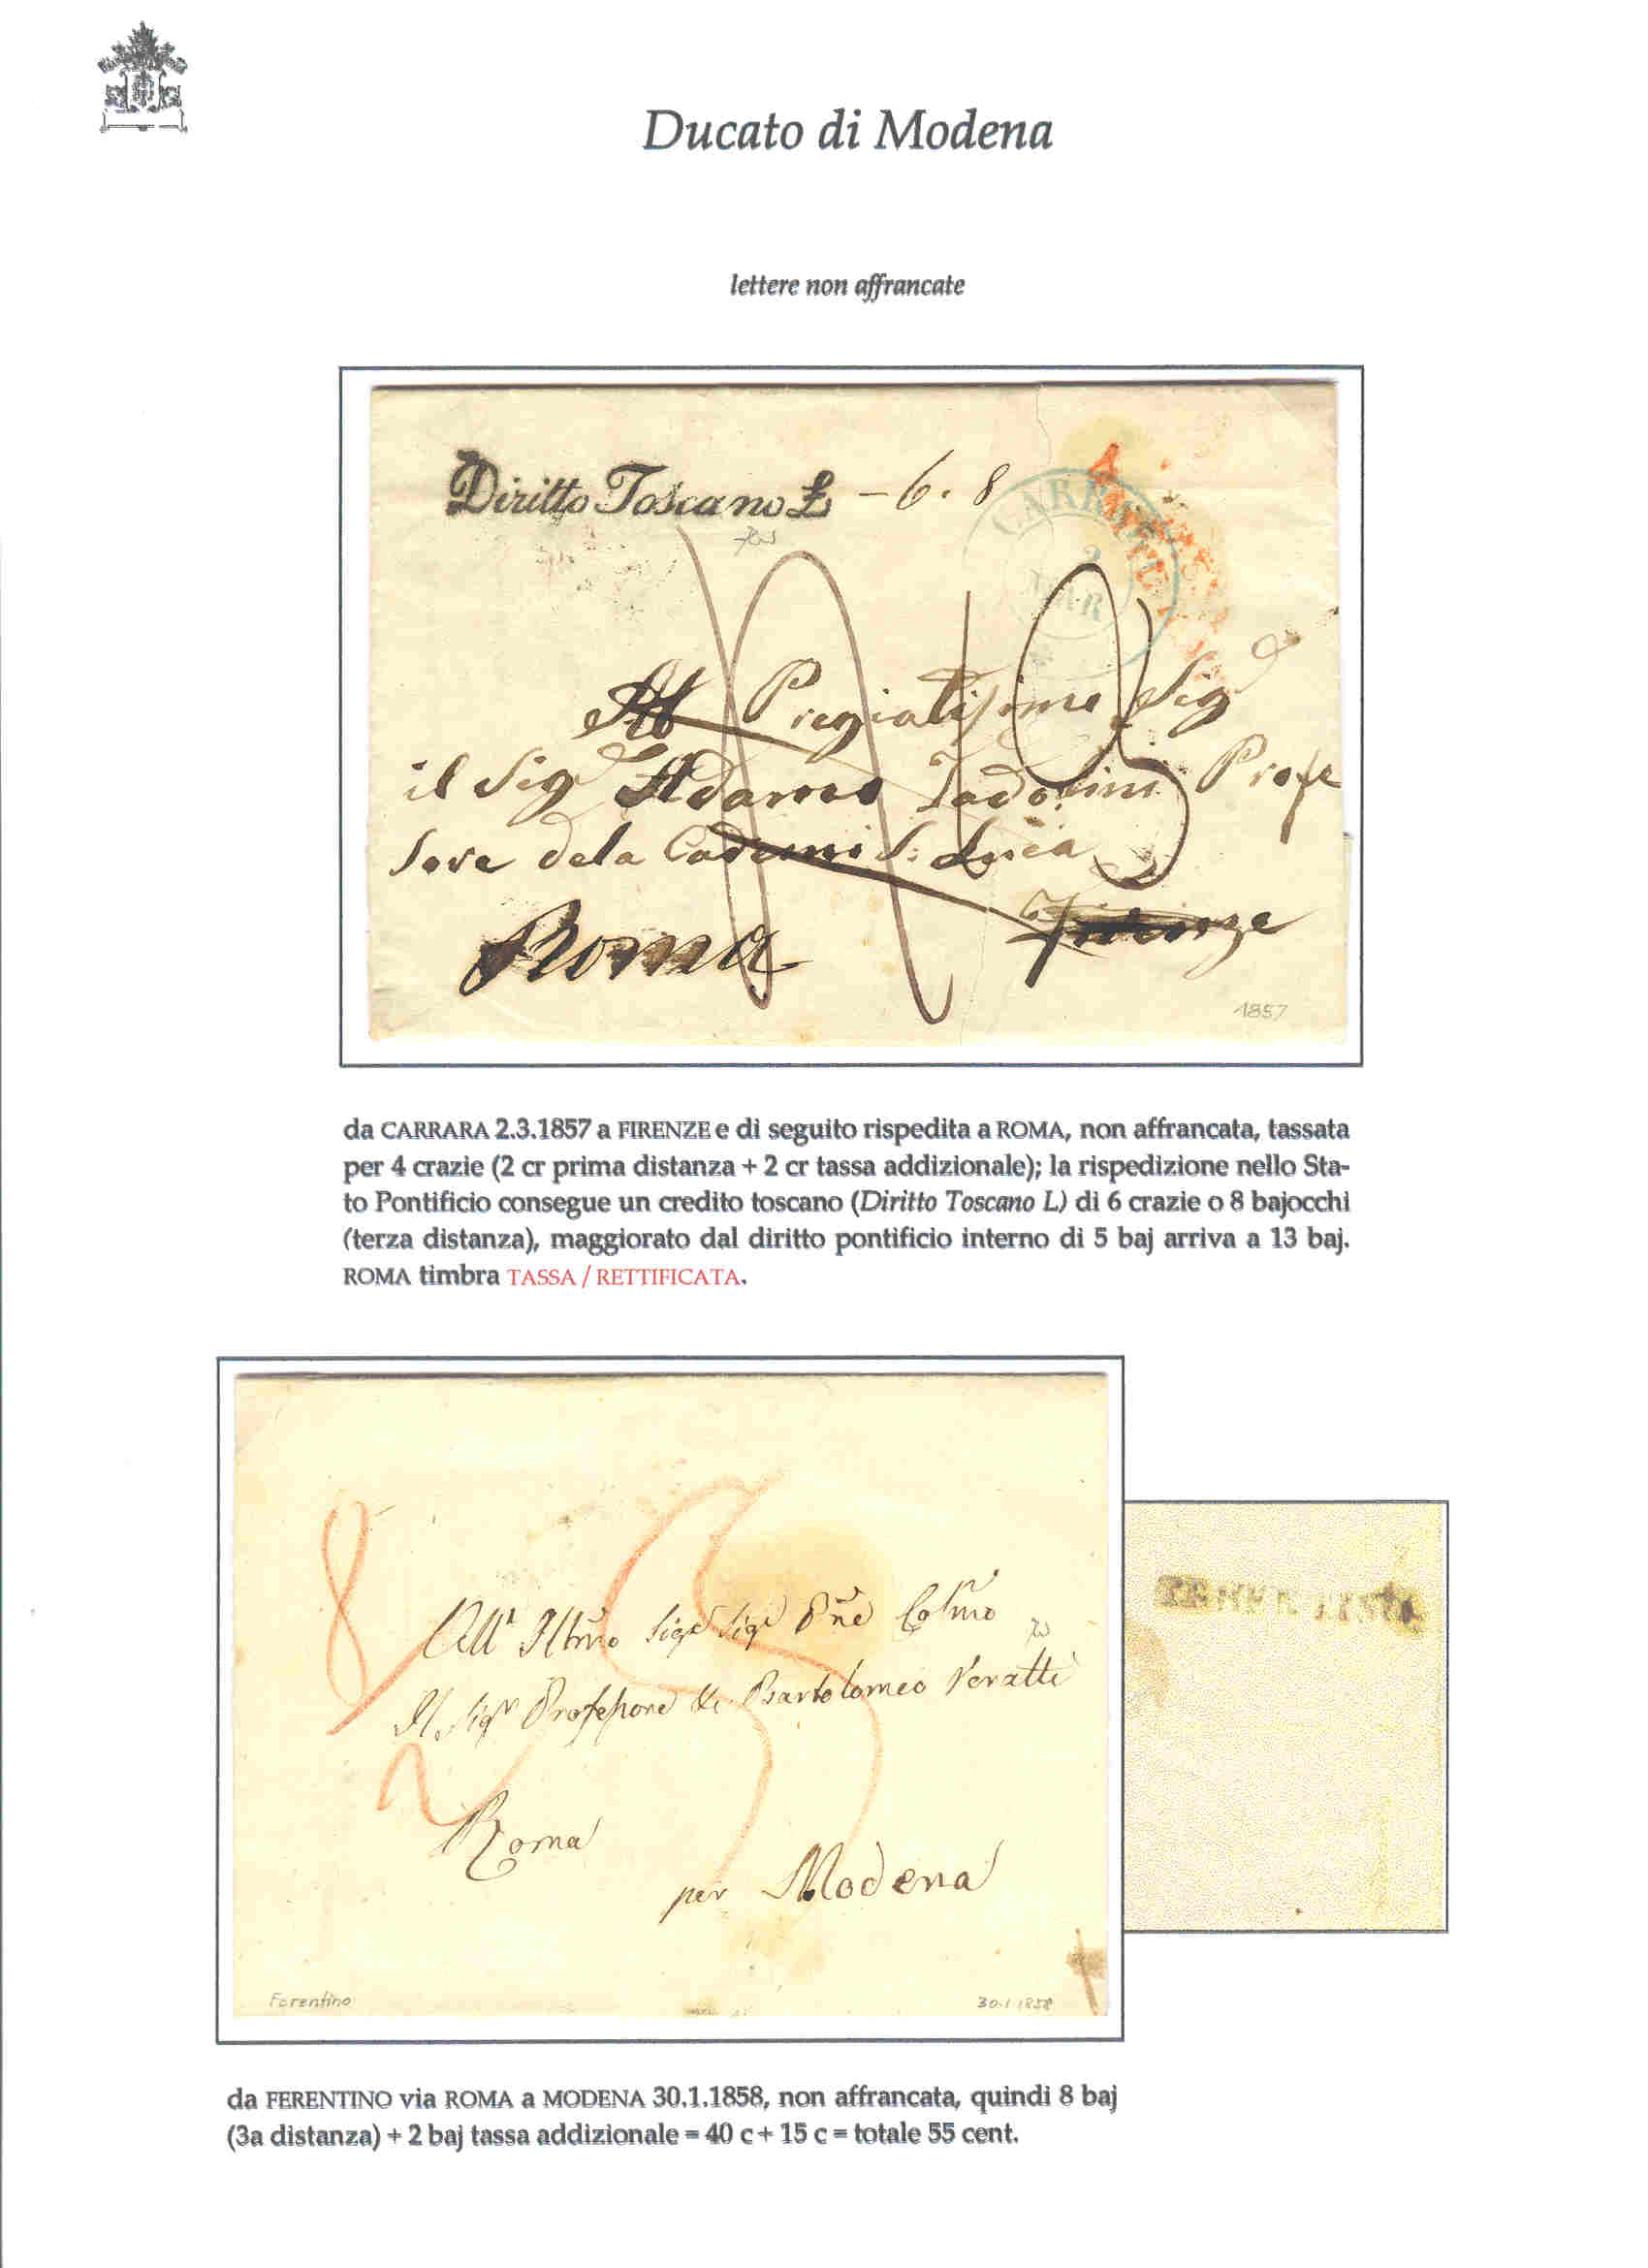 Ducato di Modena
lettere non affrancate
Diritto Toscano £ – 6. 8
CARRARA
2
MAR
Al Pregiatisimo Sig
il Sig Adamo Tadolini Profe
sore dela Cademi S: Luca
Firenze
Roma
1857
da CARRARA 2.3.1857 a FIRENZE e di seguito rispedita a ROMA, non affrancata, tassata
per 4 crazie (2 cr prima distanza + 2 cr tassa addizionale); la rispedizione nello Sta-
to Pontificio consegue un credito toscano (Diritto Toscano L) di 6 crazie o 8 bajocchi
(terza distanza), maggiorato dal diritto pontificio interno di 5 baj arriva a 13 baj.
ROMA timbra TASSA / RETTIFICATA.
8
2
All' Illmo Sigr Sigr Pne Colmo
Il Sigr Professore Bartolomeo Veratti
Roma
per Modena
Ferentino
30.1.1858
da FERENTINO via ROMA a MODENA 30.1.1858, non affrancata, quindi 8 baj
(3a distanza) + 2 baj tassa addizionale = 40 c + 15 c = totale 55 cent.